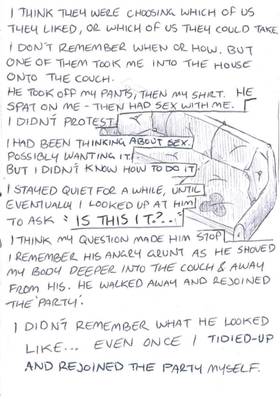 I THINK THEY WERE CHOOSING WHICH OF US
THEY LIKED, OR WHICH OF US THEY COULD TAKE.
I DON'T REMEMBER WHEN OR HOW. BUT
ONE OF THEM TOOK ME INTO THE HOUSE
ONTO THE COUCH.
HE TOOK OFF MY PANTS, THEN MY SHIRT. HE
SPAT ON ME - THEN HAD SEX WITH ME.
I DIDN'T PROTEST.
I HAD BEEN THINKING ABOUT SEX.
POSSIBLY WANTING IT.
BUT I DIDN'T KNOW HOW TO DO IT.
I STAYED QUIET FOR A WHILE, UNTIL
EVENTUALLY I LOOKED UP AT HIM
TO ASK "IS THIS IT?.."
I THINK MY QUESTION MADE HIM STOP
I REMEMBER HIS ANGRY GRUNT AS HE SHOVED
MY BODY DEEPER INTO THE COUCH & AWAY
FROM HIS. HE WALKED AWAY AND REJOINED
THE 'PARTY'.
I DIDN'T REMEMBER WHAT HE LOOKED
LIKE... EVEN ONCE I TIDIED-UP
AND REJOINED THE PARTY MYSELF.